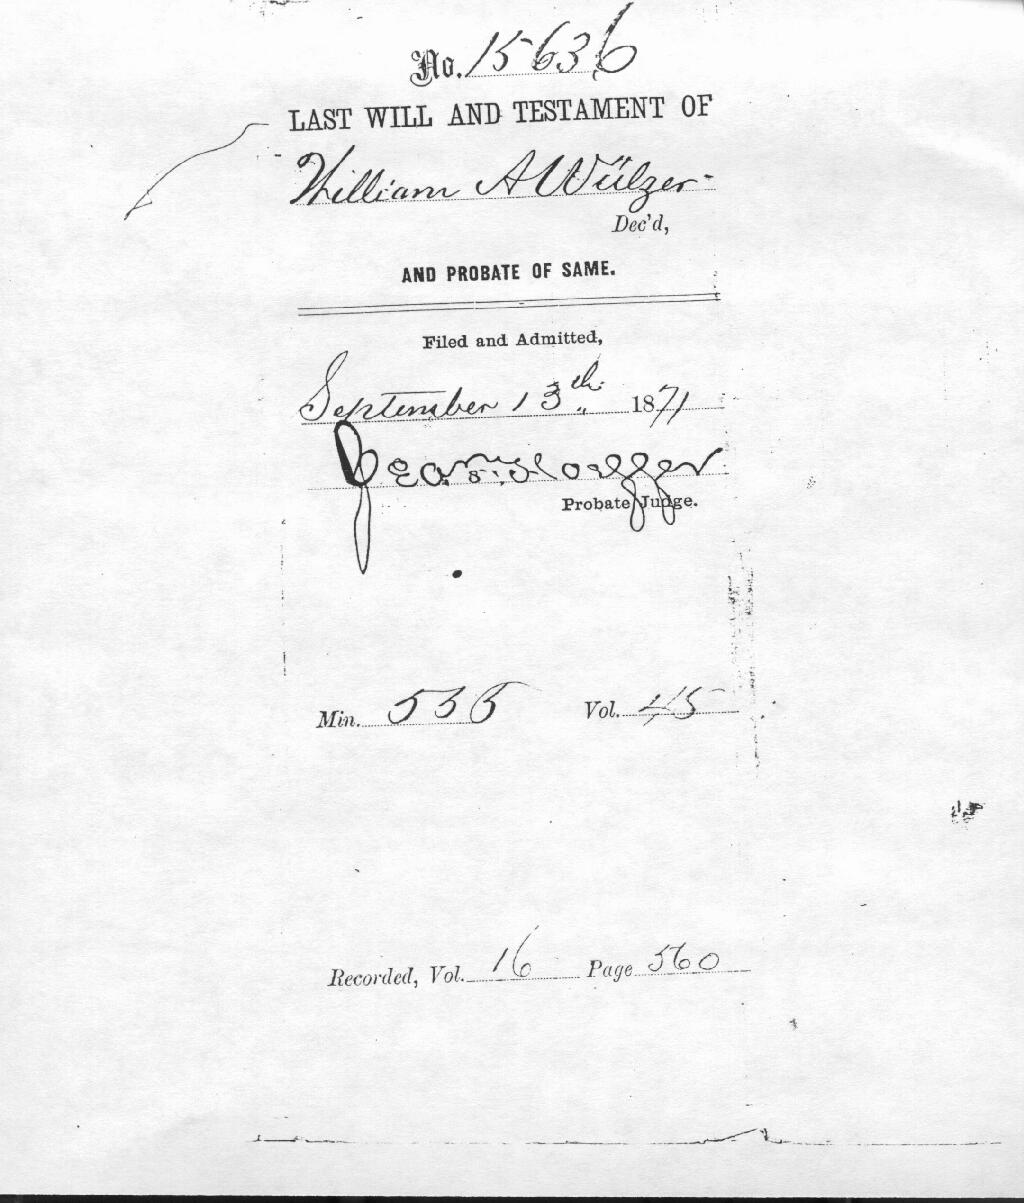 No. 15636
LAST WILL AND TESTAMENT OF
William A Wülzer
Dec'd,
AND PROBATE OF SAME.
Filed and Admitted,
September 13th 1871
Probate Judge.
Min. 536 Vol. 45
Recorded, Vol. 16 Page 560